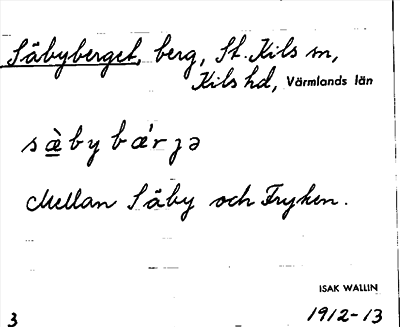 Säbyberget, berg, St. Kils sn,
Kils hd, Värmlands län
sæ̀bybæ'rjə
Mellan Säby och Fryken.
ISAK WALLIN
3 1912-13